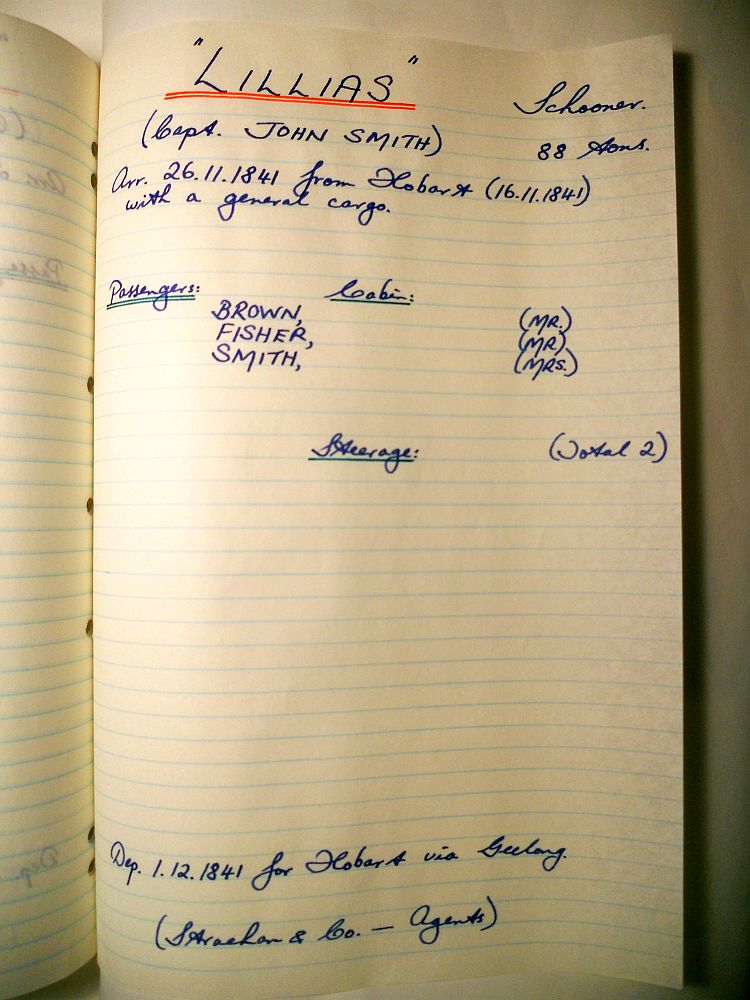 "LILLIAS"
Schooner.
(Capt. JOHN SMITH)
88 tons.
Arr. 26.11.1841 from Hobart (16.11.1841)
with a general cargo.
Passengers: Cabin:
BROWN, (MR.)
FISHER, (MR)
SMITH, (MRS.)
Steerage: (Total 2)
Dep. 1.12.1841 for Hobart via Geelong.
(Strachan & Co. — Agents)